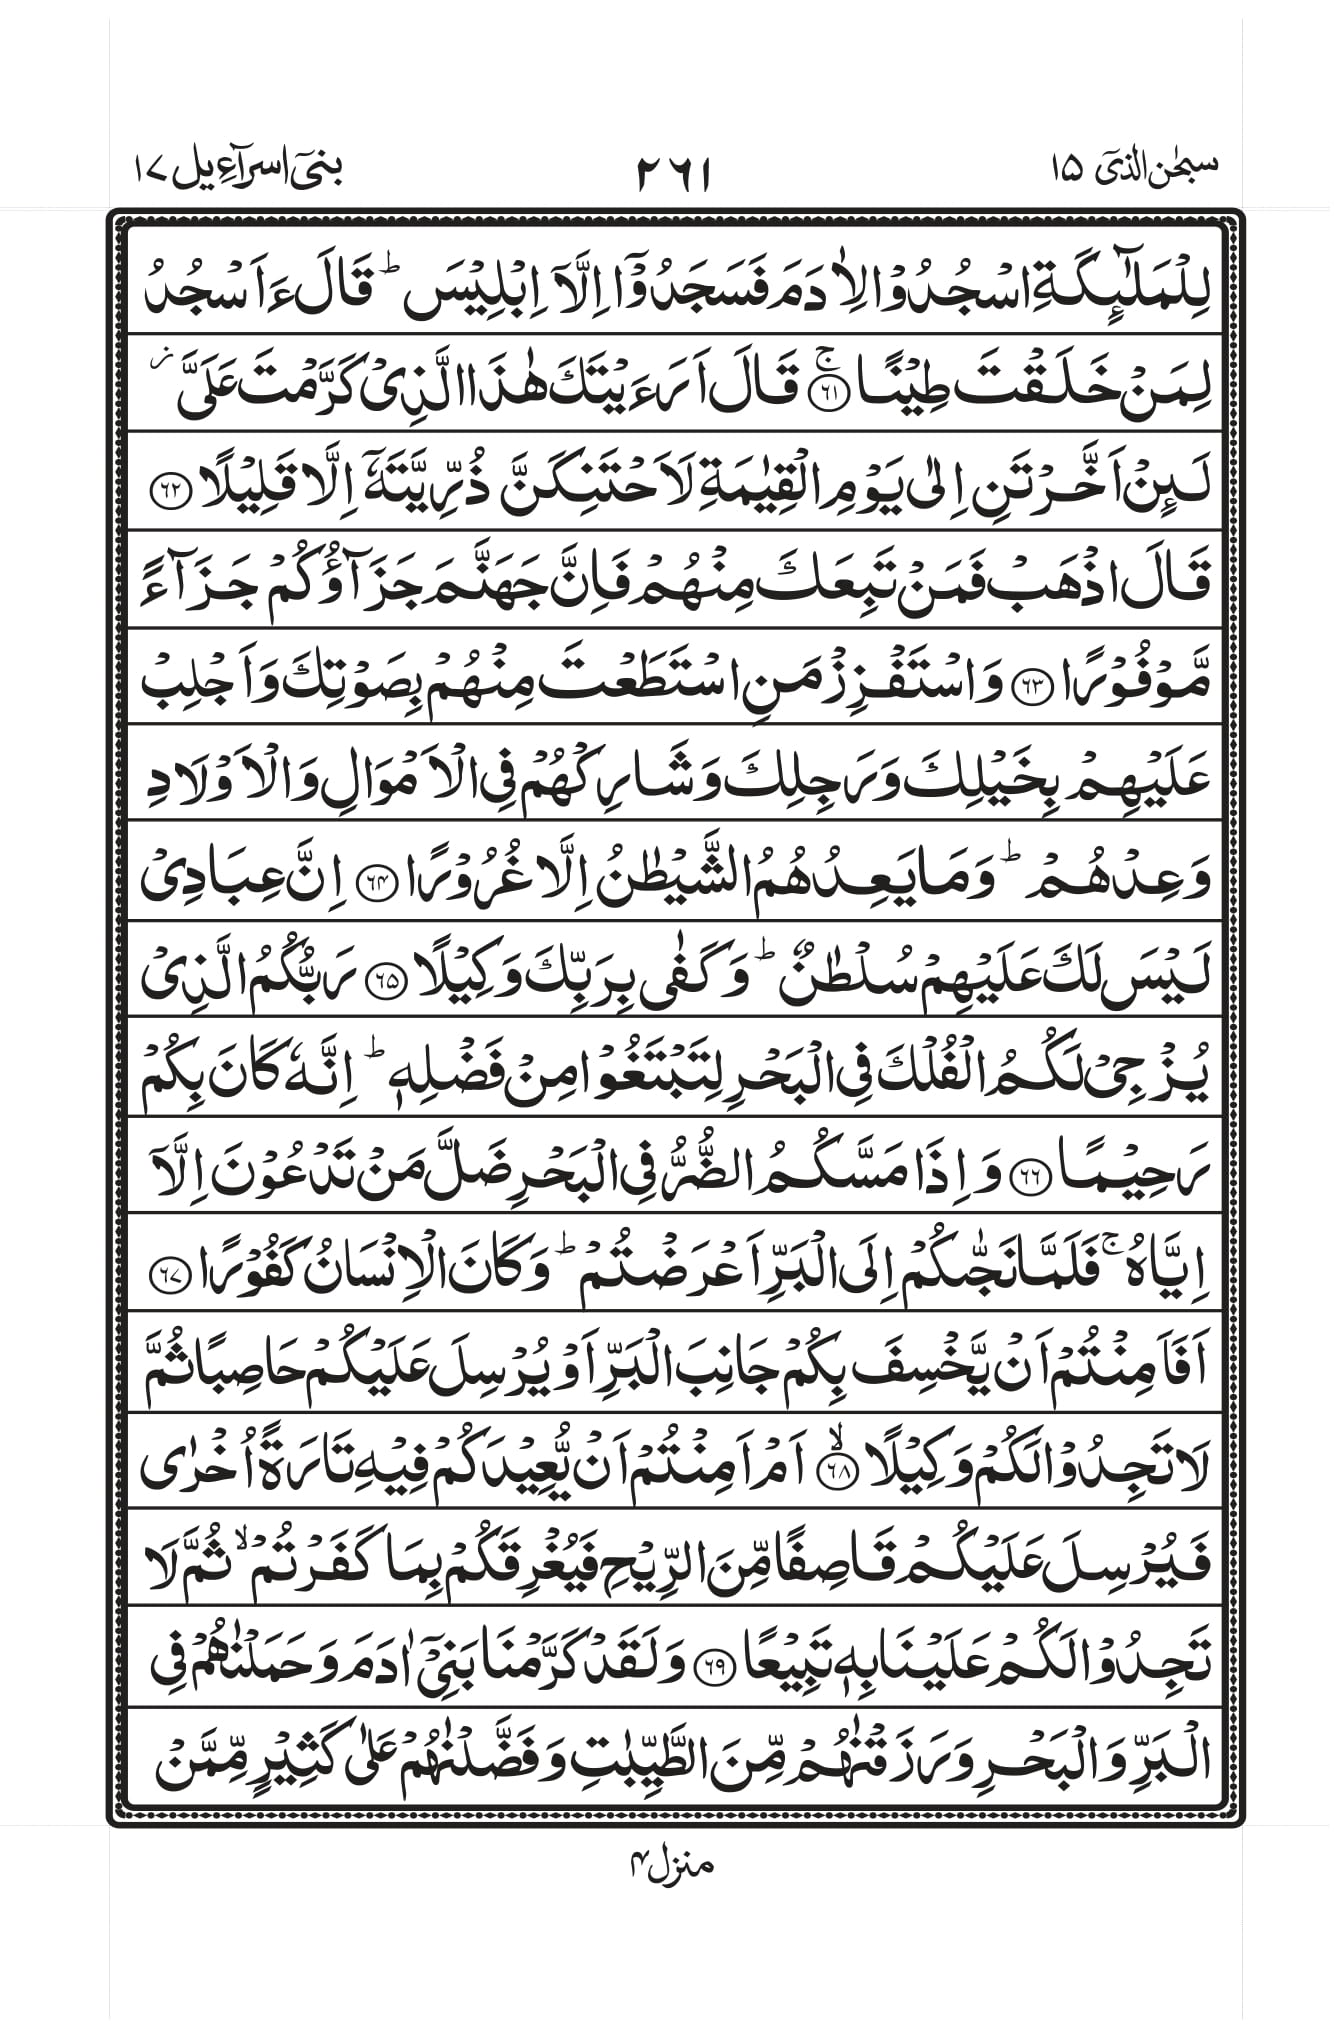 سبحٰن الذیٓ ١٥
٢٦١
بنیٓ اسرآءِیل ١٧
لِلْمَلٰٓئِكَةِ اسْجُدُوْا لِاٰدَمَ فَسَجَدُوْۤا اِلَّاۤ اِبْلِیْسَ ؕ قَالَ ءَاَسْجُدُ
لِمَنْ خَلَقْتَ طِیْنًا ۚ۶۱ قَالَ اَرَءَیْتَكَ هٰذَا الَّذِیْ كَرَّمْتَ عَلَیَّ ؗ
لَىِٕنْ اَخَّرْتَنِ اِلٰی یَوْمِ الْقِیٰمَةِ لَاَحْتَنِكَنَّ ذُرِّیَّتَهٗۤ اِلَّا قَلِیْلًا ۶۲
قَالَ اذْهَبْ فَمَنْ تَبِعَكَ مِنْهُمْ فَاِنَّ جَهَنَّمَ جَزَآؤُكُمْ جَزَآءً
مَّوْفُوْرًا ۶۳ وَاسْتَفْزِزْ مَنِ اسْتَطَعْتَ مِنْهُمْ بِصَوْتِكَ وَاَجْلِبْ
عَلَیْهِمْ بِخَیْلِكَ وَرَجِلِكَ وَشَارِكْهُمْ فِی الْاَمْوَالِ وَالْاَوْلَادِ
وَعِدْهُمْ ؕ وَمَا یَعِدُهُمُ الشَّیْطٰنُ اِلَّا غُرُوْرًا ۶۴ اِنَّ عِبَادِیْ
لَیْسَ لَكَ عَلَیْهِمْ سُلْطٰنٌ ؕ وَكَفٰی بِرَبِّكَ وَكِیْلًا ۶۵ رَبُّكُمُ الَّذِیْ
یُزْجِیْ لَكُمُ الْفُلْكَ فِی الْبَحْرِ لِتَبْتَغُوْا مِنْ فَضْلِهٖ ؕ اِنَّهٗ كَانَ بِكُمْ
رَحِیْمًا ۶۶ وَاِذَا مَسَّكُمُ الضُّرُّ فِی الْبَحْرِ ضَلَّ مَنْ تَدْعُوْنَ اِلَّاۤ
اِیَّاهُ ۚ فَلَمَّا نَجّٰىكُمْ اِلَی الْبَرِّ اَعْرَضْتُمْ ؕ وَكَانَ الْاِنْسَانُ كَفُوْرًا ۶۷
اَفَاَمِنْتُمْ اَنْ یَّخْسِفَ بِكُمْ جَانِبَ الْبَرِّ اَوْ یُرْسِلَ عَلَیْكُمْ حَاصِبًا ثُمَّ
لَا تَجِدُوْا لَكُمْ وَكِیْلًا ۙ۶۸ اَمْ اَمِنْتُمْ اَنْ یُّعِیْدَكُمْ فِیْهِ تَارَةً اُخْرٰی
فَیُرْسِلَ عَلَیْكُمْ قَاصِفًا مِّنَ الرِّیْحِ فَیُغْرِقَكُمْ بِمَا كَفَرْتُمْ ۙ ثُمَّ لَا
تَجِدُوْا لَكُمْ عَلَیْنَا بِهٖ تَبِیْعًا ۶۹ وَلَقَدْ كَرَّمْنَا بَنِیْۤ اٰدَمَ وَحَمَلْنٰهُمْ فِی
الْبَرِّ وَالْبَحْرِ وَرَزَقْنٰهُمْ مِّنَ الطَّیِّبٰتِ وَفَضَّلْنٰهُمْ عَلٰی كَثِیْرٍ مِّمَّنْ
منزل۴